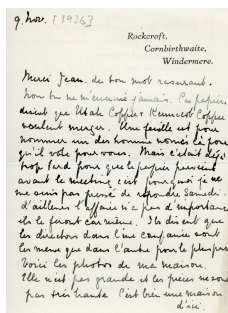 9. Nov. [1936]
Rockcroft,
Cornbirthwaite,
Windermere.
Merci Jean. de ton mot rassurant.
Non tu ne m'ennuie jamais. Ces papiers
disent que Utah Copper Kennecot Copper
veulent merger. Une feuille est pour
nommer un des hommes nommés là pour
qu'il vote pour vous. Mais c'était déjà
trop tard pour que le papier parvient
avant le meeting c'est pour quoi je ne
me suis pas pressé de répondre Samedi.
d'ailleurs l'affaire n'a pas d'importance
ils le feront car même. Ils disent que
les directors dans l'une compagnie sont
les mêmes que dans l'autre pour la plupart
Voici les photos de ma maison.
Elle n'est pas grande et les pièces ne sont
pas très hautes. C'est bien une maison
d'ici.